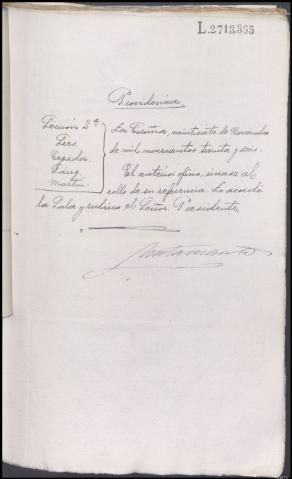 L.2713565
Providencia
Sección 2ª
Feo
Cepeda
Fáng
Martín.
La Coruña, veintisiete de Noviembre
de mil novecientos treinta y seis.
El anterior oficio, únase al
rollo de su referencia. Lo acordó
la Sala y rubrica el Señor Presidente,